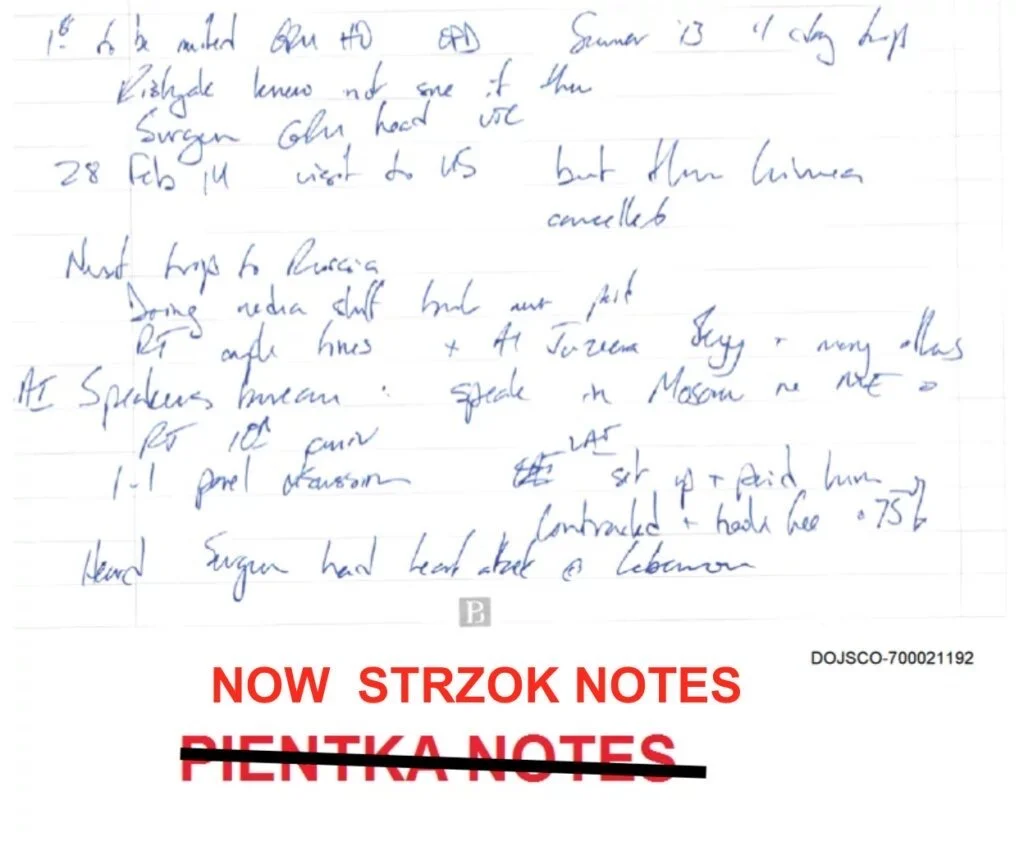 1st to be invited GRU HQ Summer '13 4 day trip
Kislyak knew not sure if then
Surgun GRU head
28 Feb 14 visit to US but then Crimea
cancelled
Next trips to Russia
Doing media stuff but not paid
RT couple times + Al Jazeera + many others
Speakers bureau : speak in Moscow re
RT 10th anniv
LAI
1-1 panel discussion set up + paid him
Contracted + took fee
Heard Surgun had heart attack @ Lebanon
PB
DOJSCO-700021192
NOW STRZOK NOTES
PIENTKA NOTES